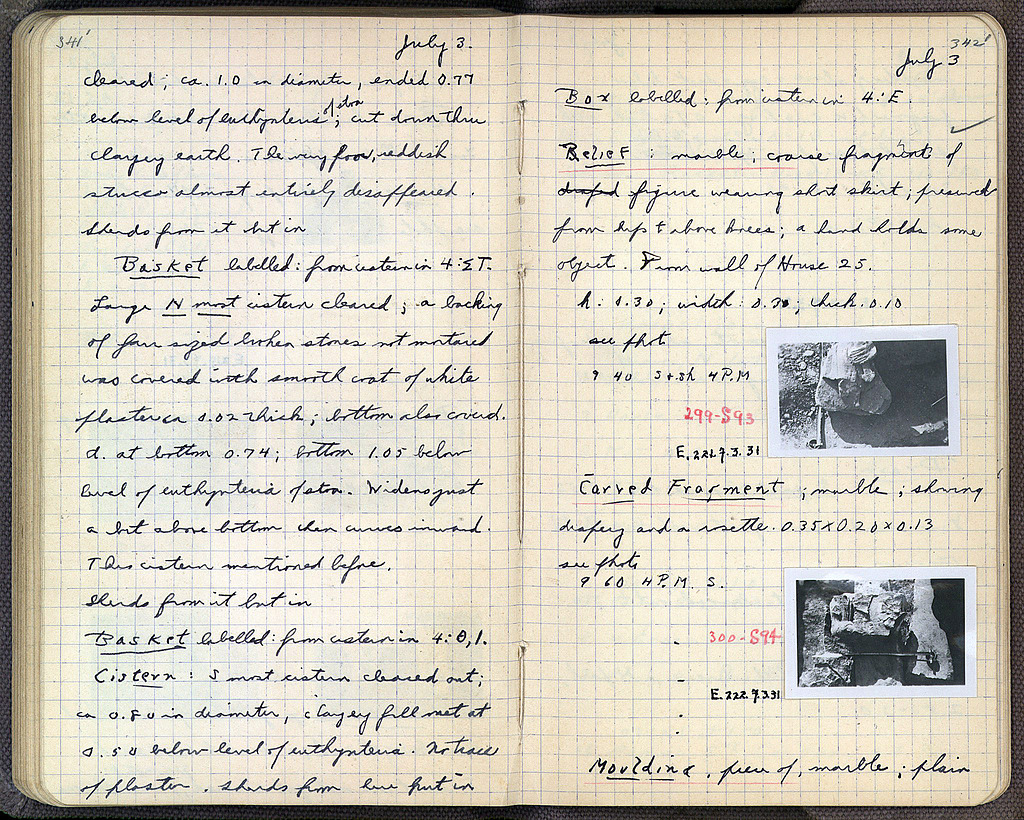 341'
July 3.
cleared; ca. 1.0 in diameter, ended 0.77
below level of euthynteria of stoa; cut down thru
clayey earth. The very poor, reddish
stucco almost entirely disappeared.
Sherds from it put in
Basket labelled: from cistern in 4:ΣΤ.
Large N most cistern cleared; a backing
of fair sized broken stones not mortared
was covered with smooth coat of white
plaster ca 0.02 thick; bottom also covered.
d. at bottom 0.74; bottom 1.05 below
level of euthynteria of stoa. Widens just
a bit above bottom then curves inward.
This cistern mentioned before.
Sherds from it put in
Basket labelled: from cistern in 4:Θ,1.
Cistern: S most cistern cleared out;
ca 0.80 in diameter, clayey fill met at
0.50 below level of euthynteria. No trace
of plaster. Sherds from here put in
342'
July 3
Box labelled: from cistern in 4:E.
Relief: marble; coarse fragment of
draped figure wearing short skirt; preserved
from hip to above knees; a hand holds some
object. From wall of House 25.
h: 0.30; width: 0.30; thick. 0.10
see phot
9 40 S+Sh 4 P.M
299-S93
E.221.7.3.31
Carved Fragment; marble; showing
drapery and a rosette. 0.35x0.20x0.13
see photo
9 60 4 P.M. S.
300-S94
E.222.7.3.31
Moulding, piece of, marble; plain